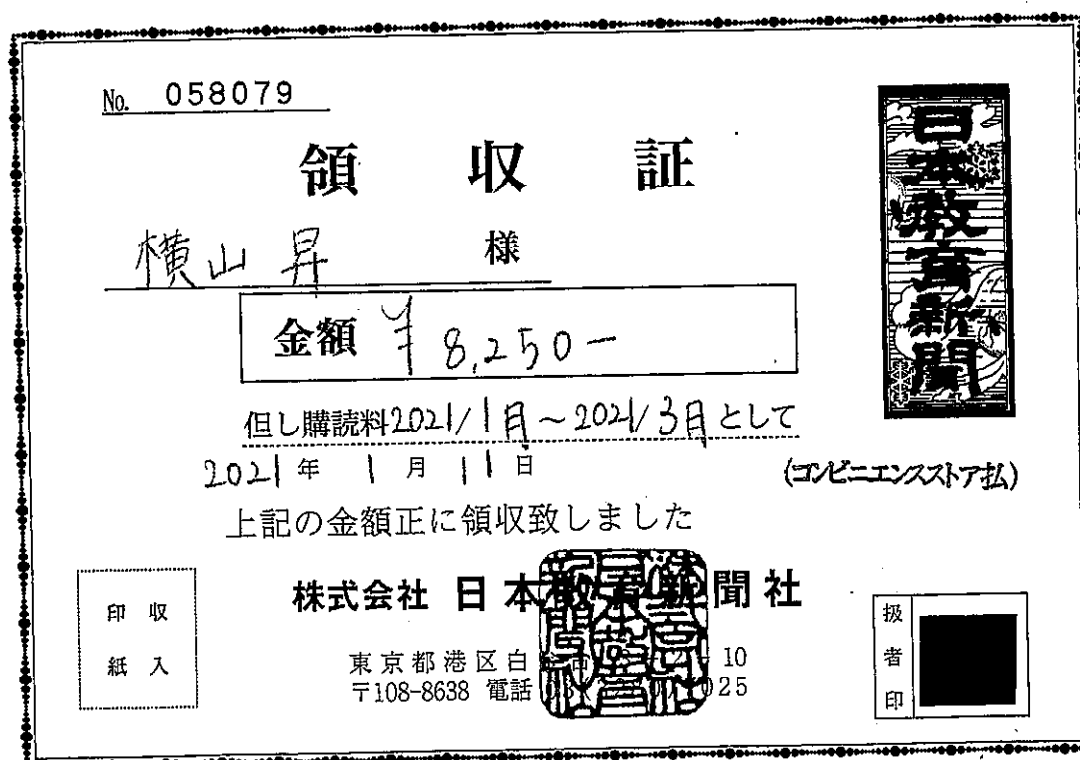 No. 058079
日本教育新聞
領収証
横山 昇 様
金額 ¥ 8,250-
但し購読料2021/1月～2021/3月として
2021年 1月 11日
(コンビニエンスストア払)
上記の金額正に領収致しました
株式会社 日本教育新聞社
東京都港区白 10
〒108-8638 電話 025
収入
印紙
扱者印